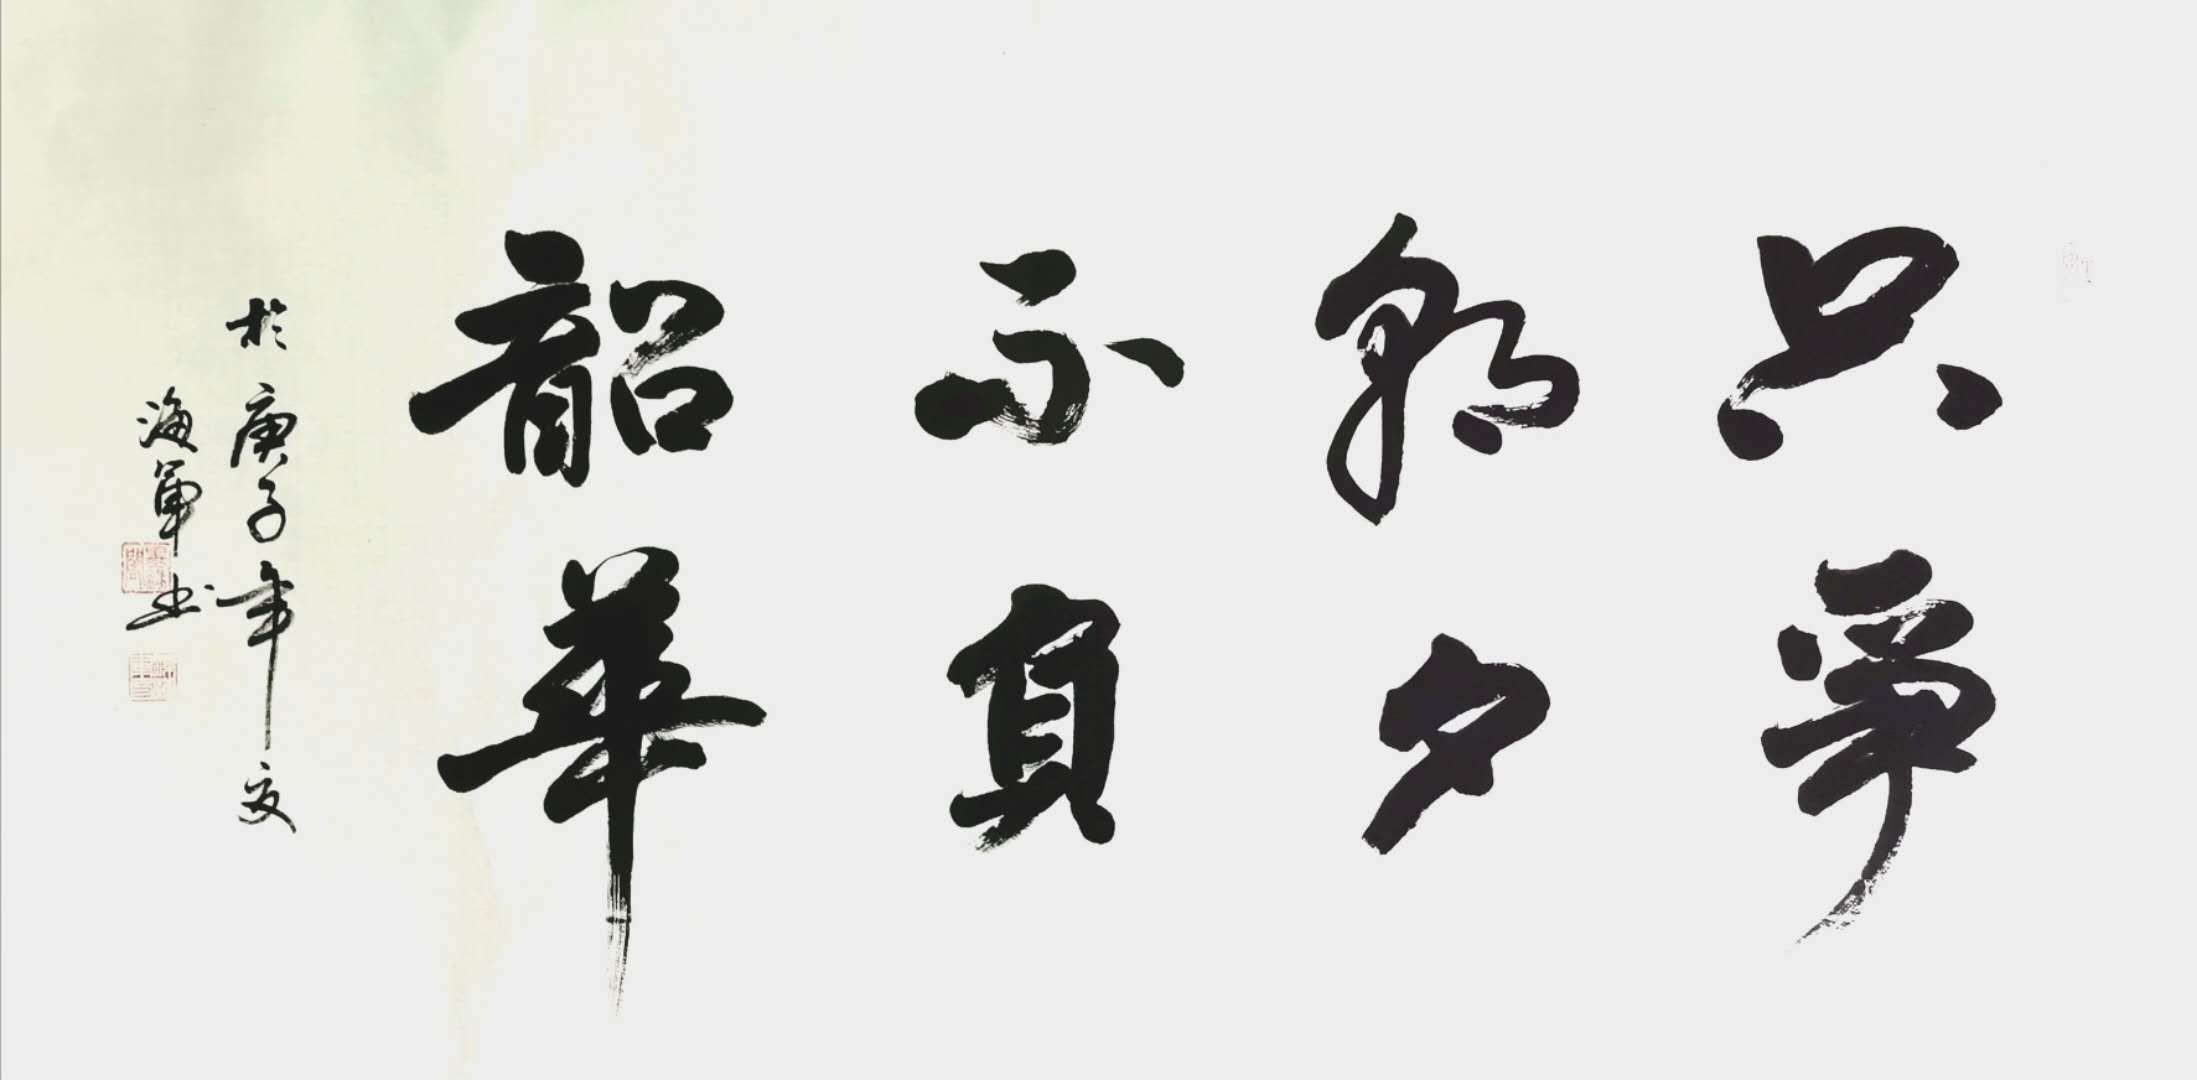 只争
朝夕
不負
韶華
於庚子年夏
海軍书